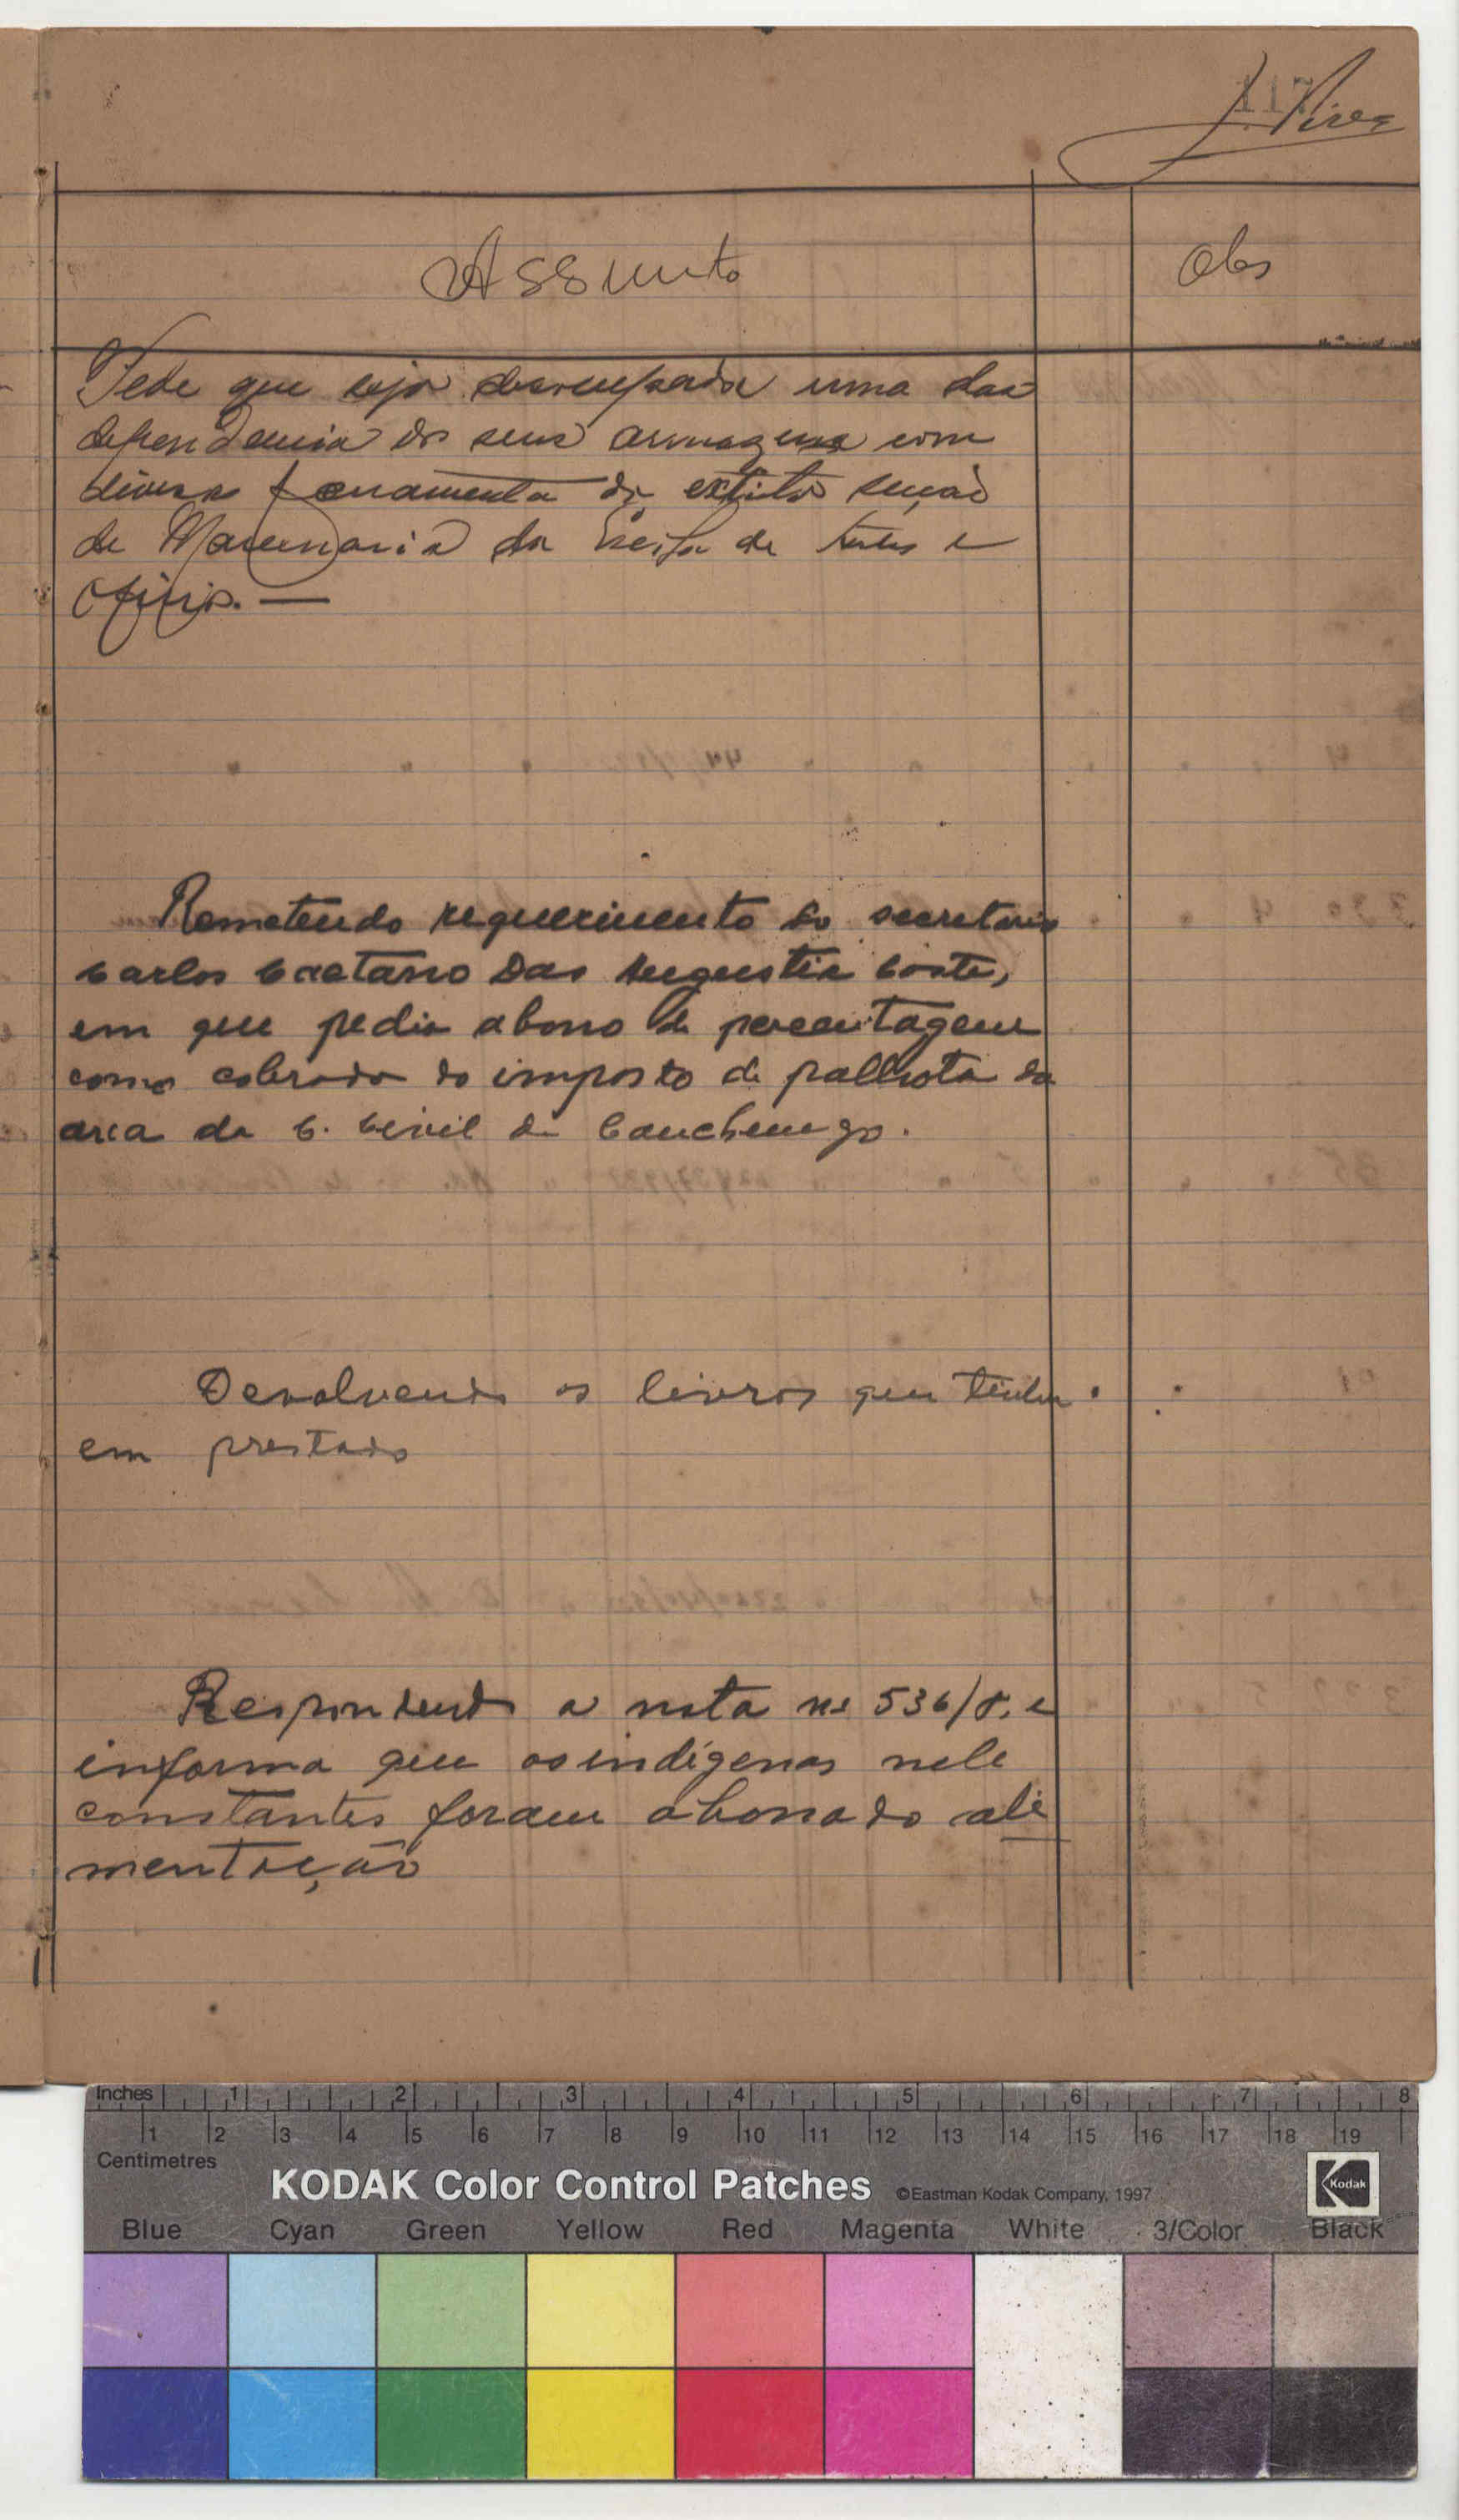 117
J. Pires
Assunto
Obs
Pede que seja desocupada uma das
dependencia dos seus armagens com
diversas ferramenta da extinta secção
de Marcenaria da Escola de Artes e
Oficios. —
Remetendo requerimento do secretario
Carlos Caetano das Costa,
em que pedia abono de percentagem
como cobrado do imposto de palhota da
area da C. Civil de Canchungo.
Devolvendo os livros que tinha
em prestado
Respondendo a nota nº 536/ e
informa que os indígenas nele
constantes foram abonado ali
mentação
Inches 1 2 3 4 5 6 7 8
1 2 3 4 5 6 7 8 9 10 11 12 13 14 15 16 17 18 19
Centimetres
KODAK Color Control Patches ©Eastman Kodak Company, 1997 Kodak
Blue Cyan Green Yellow Red Magenta White 3/Color Black